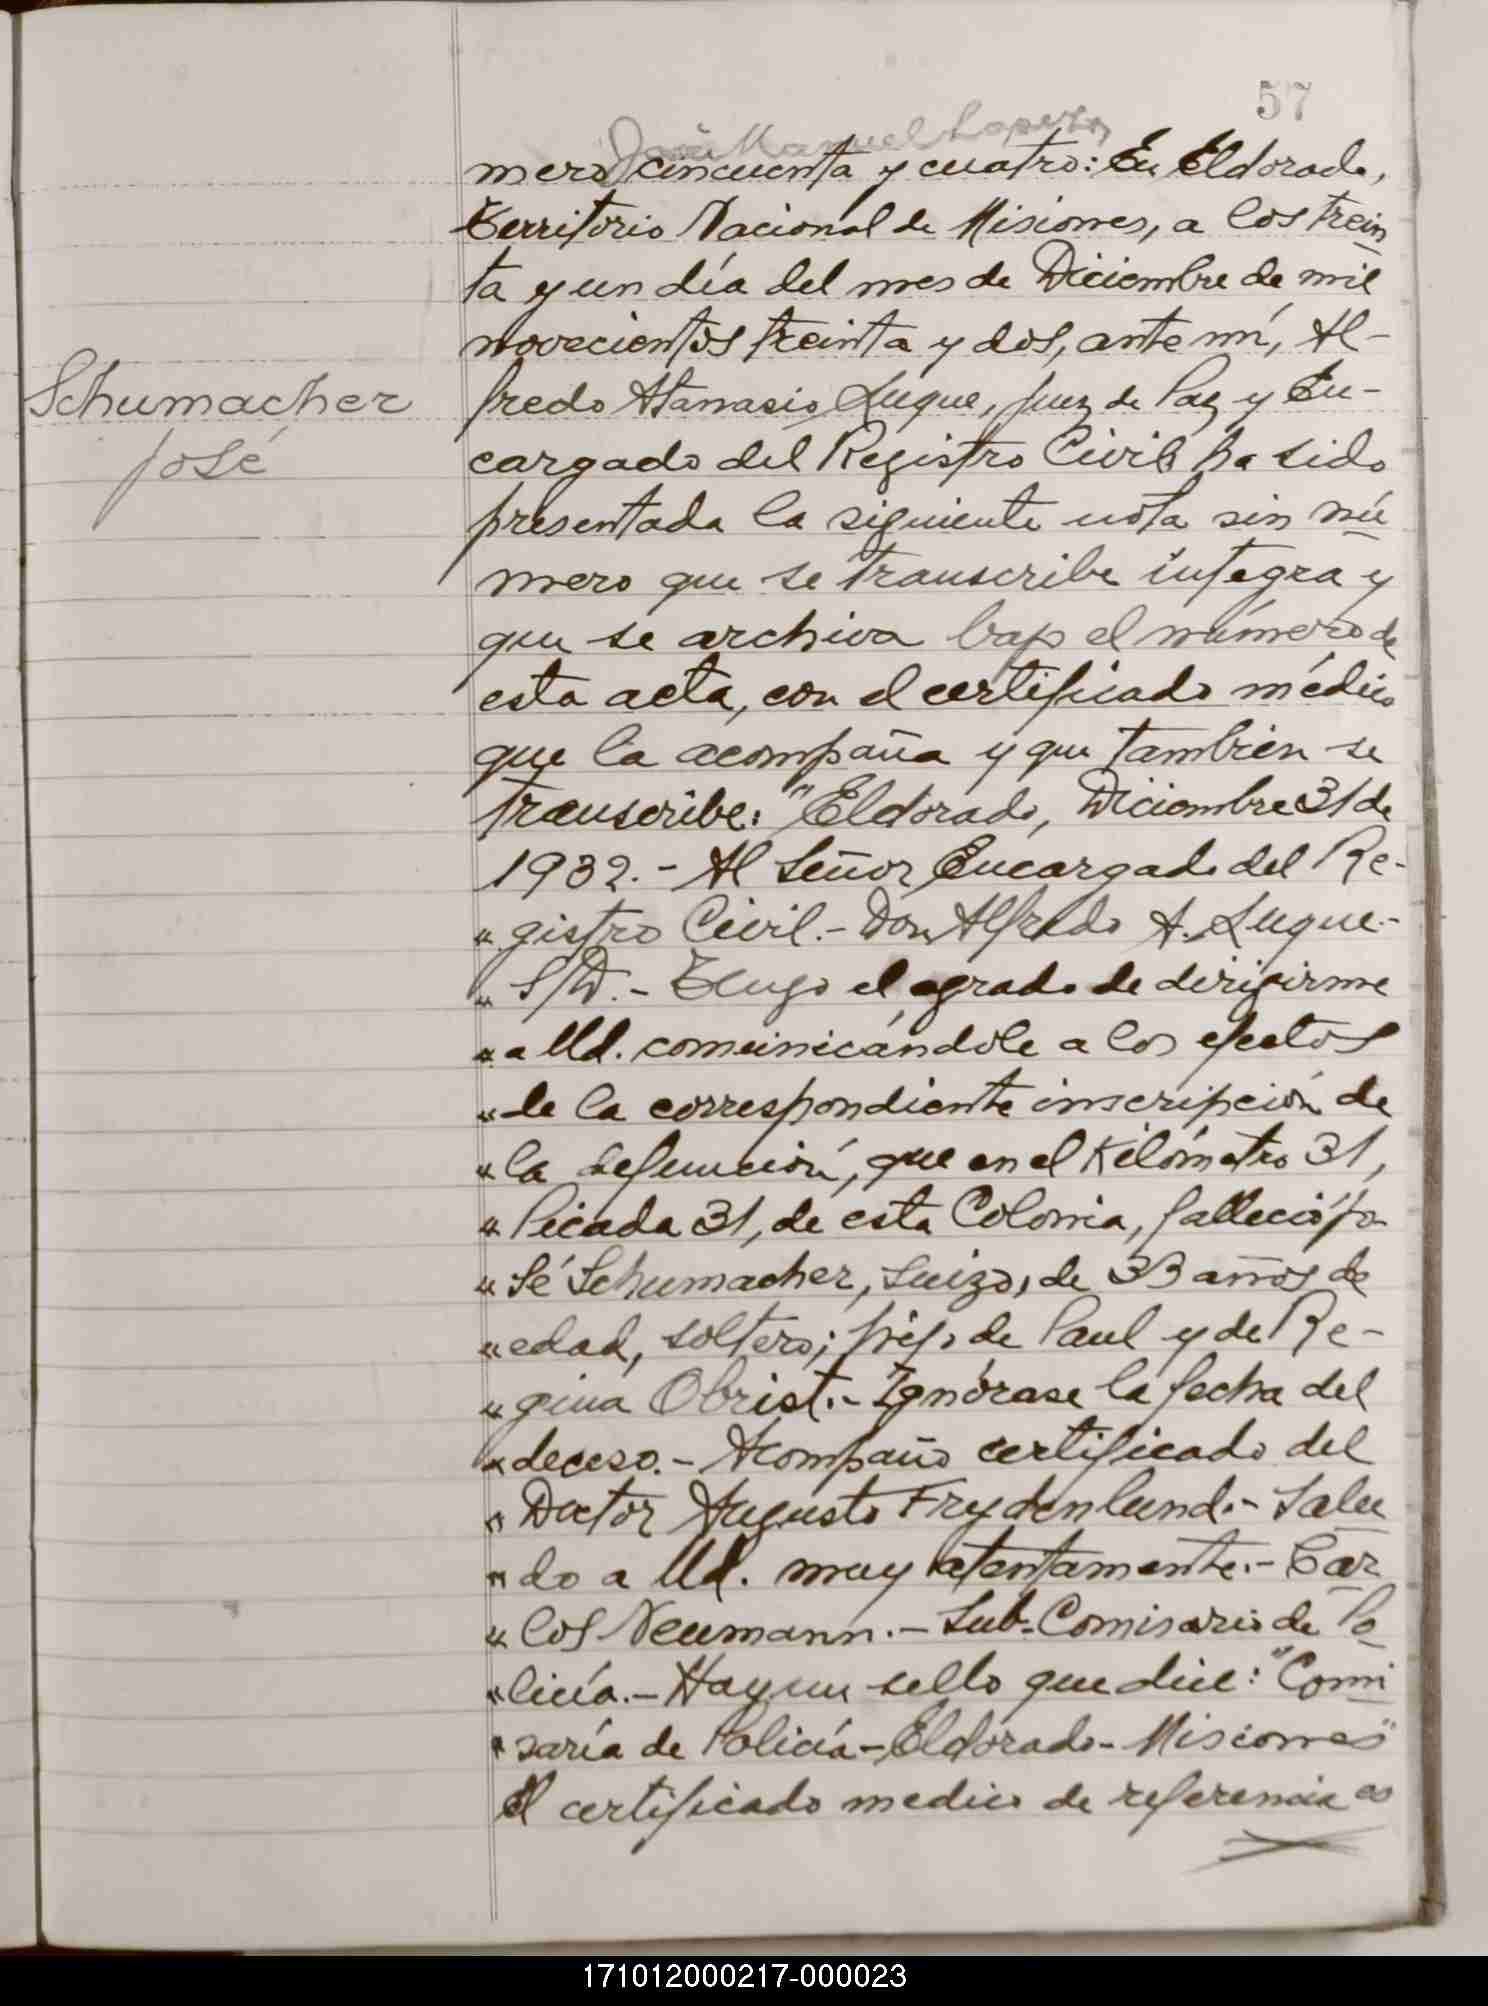 57
José Manuel Lopez
mero cincuenta y cuatro: En Eldorado,
Territorio Nacional de Misiones, a los trein
ta y un día del mes de Diciembre de mil
novecientos treinta y dos, ante mí, Al-
fredo Atanasio Luque, Juez de Paz y En-
Schumacher
José
cargado del Registro Civil ha sido
presentada la siguiente nota sin nú
mero que se transcribe integra y
que se archiva bajo el número de
esta acta, con el certificado médico
que la acompaña y que tambien se
transcribe: "Eldorado, Diciembre 31 de
1932.- Al Señor Encargado del Re-
" gistro Civil.- Don Alfredo A. Luque.-
" S/D.- Tengo el agrado de dirigirme
" a Ud. comunicándole a los efectos
" de la correspondiente inscripción de
" la defunción, que en el Kilómetro 31,
" Picada 31, de esta Colonia, falleció Jo
" sé Schumacher, Suizo, de 33 años de
" edad, soltero; hijo de Paul y de Re-
" gina Obrist.- Ignórase la fecha del
" deceso.- Acompaño certificado del
" Doctor Augusto Frydenlund.- Salu
" do a Ud. muy atentamente.- Car
" los Neumann.- Sub-Comisario de Po
" licía.- Hay un sello que dice: "Comi
" saría de Policía-Eldorado-Misiones"
El certificado medico de referencia es
171012000217-000023